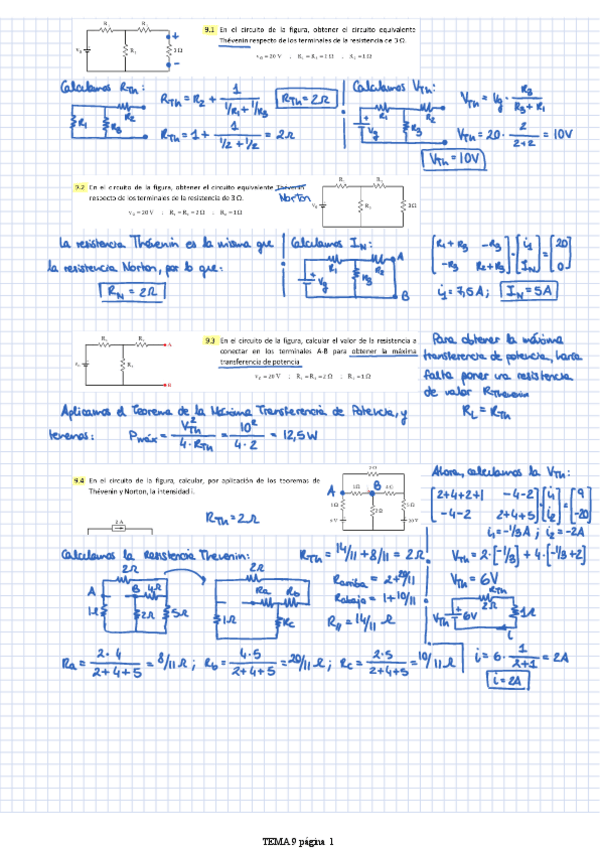 9.1 En el circuito de la figura, obtener el circuito equivalente
Thévenin respecto de los terminales de la resistencia de 3 Ω.
Calculamos RTh:
RTh = R2 + 1 / (1/R1 + 1/R3)
RTh = 2Ω
RTh = 1 + 1 / (1/2 + 1/2) = 2Ω
Calculamos VTh:
VTh = Vg · R3 / (R3 + R1)
VTh = 20 · 2 / (2+2) = 10V
VTh = 10V
9.2 En el circuito de la figura, obtener el circuito equivalente Thévenin
Norton
respecto de los terminales de la resistencia de 3 Ω.
vg = 20 V ; R1 = R3 = 2 Ω ; R2 = 1 Ω
La resistencia Thévenin es la misma que
la resistencia Norton, por lo que:
RN = 2Ω
Calculamos IN:
A
B
[R1+R3 -R3; -R3 R2+R3] · [i1; IN] = [20; 0]
i1 = 7,5A; IN = 5A
9.3 En el circuito de la figura, calcular el valor de la resistencia a
conectar en los terminales A-B para obtener la máxima
transferencia de potencia
vg = 20 V ; R1 = R3 = 2 Ω ; R2 = 1 Ω
Para obtener la máxima
transferencia de potencia, hará
falta poner una resistencia
de valor RThevenin
RL = RTh
Aplicamos el Teorema de la Máxima Transferencia de Potencia, y
tenemos: Pmáx = VTh² / (4·RTh) = 10² / (4·2) = 12,5W
9.4 En el circuito de la figura, calcular, por aplicación de los teoremas de
Thévenin y Norton, la intensidad i.
2 A
RTh = 2Ω
A
B
Ahora, calculamos la VTh:
[2+4+2+1 -4-2; -4-2 2+4+5] · [i1; i2] = [9; -20]
i1 = -1/3 A ; i2 = -2A
Calculamos la Resistencia Thevenin:
RTh = 14/11 + 8/11 = 2Ω
VTh = 2·[-1/3] + 4·[-1/3+2]
VTh = 6V
Rarriba = 2 + 20/11
Rabajo = 1 + 10/11
R// = 14/11 Ω
2Ω
A B 4Ω
1Ω 2Ω 5Ω
2Ω
Ra Rb
1Ω Rc
RTh
2Ω
VTh 6V 1Ω
i
Ra = 2·4 / (2+4+5) = 8/11 Ω ; Rb = 4·5 / (2+4+5) = 20/11 Ω ; Rc = 2·5 / (2+4+5) = 10/11 Ω
i = 6 · 1 / (2+1) = 2A
i = 2A
TEMA 9 página 1